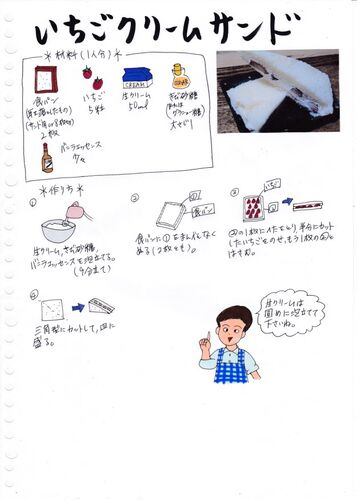 いちごクリームサンド
＊材料(1人分)＊
食パン
(耳を落としたもの)
2枚
いちご
5粒
CREAM
生クリーム
50ml
きび砂糖
(または
グラニュー糖)
大さじ1
バニラエッセンス
少々
＊作り方＊
①
生クリーム、きび砂糖、
バニラエッセンスを泡立てる。
(9分立て)
②
①
食パン
食パンに①をまんべんなく
ぬる(2枚とも)。
③
いちご
②の1枚にへたをとり、半分にカット
したいちごをのせ、もう1枚の②で
はさむ。
④
三角型にカットして、皿に
盛る。
生クリームは
固めに泡立てて
下さいね。